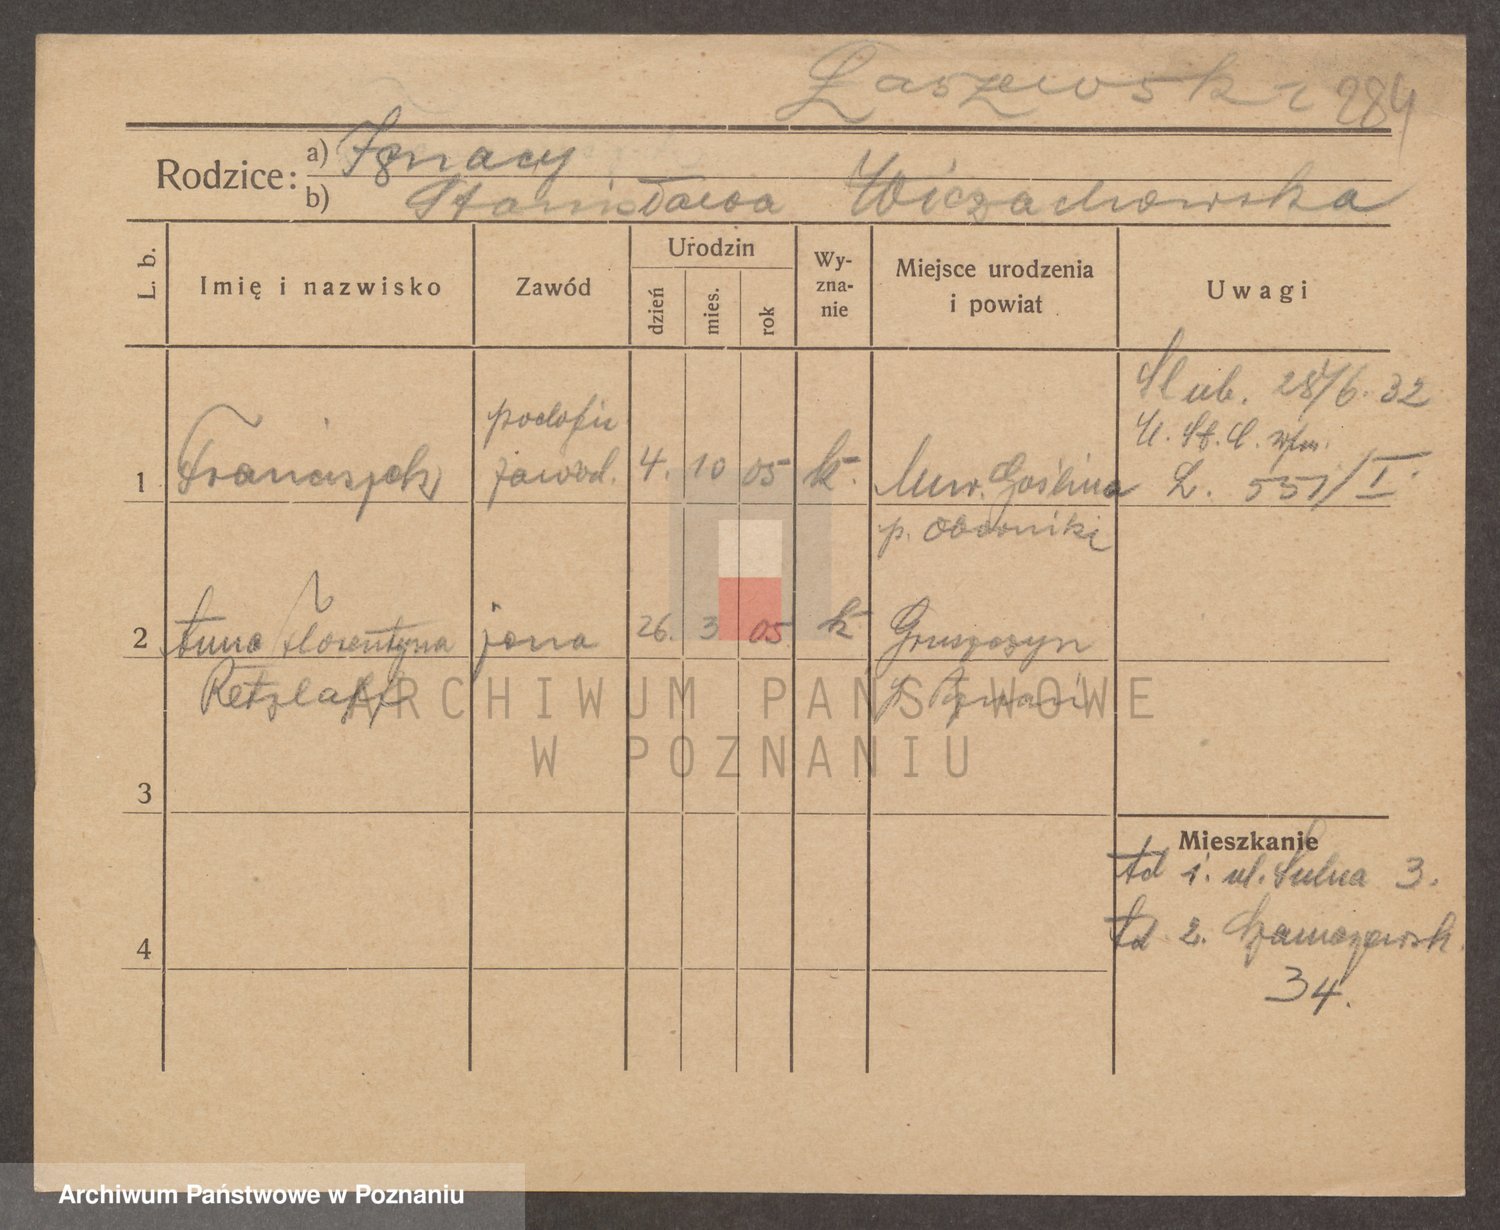 Łaszewski 284
Rodzice: a) Ignacy
b) Stanisława Wiczachowska
L. b. Imię i nazwisko Zawód Urodzin Wy- Miejsce urodzenia Uwagi
dzień mies. rok zna- i powiat
nie
Ślub. 28/6. 32
podofic U. St. C.
1 Franciszek zawod. 4. 10 05 k. Mur. Goślina L. 551/I.
p. Oborniki
2 Anna Florentyna żona 26. 3 05 k Gruszczyn
Retzlaff
ARCHIWUM PAŃSTWOWE
W POZNANIU
3
Mieszkanie
ad 1. ul. Sulna 3.
4 ad 2. Szamarzewsk.
34.
Archiwum Państwowe w Poznaniu